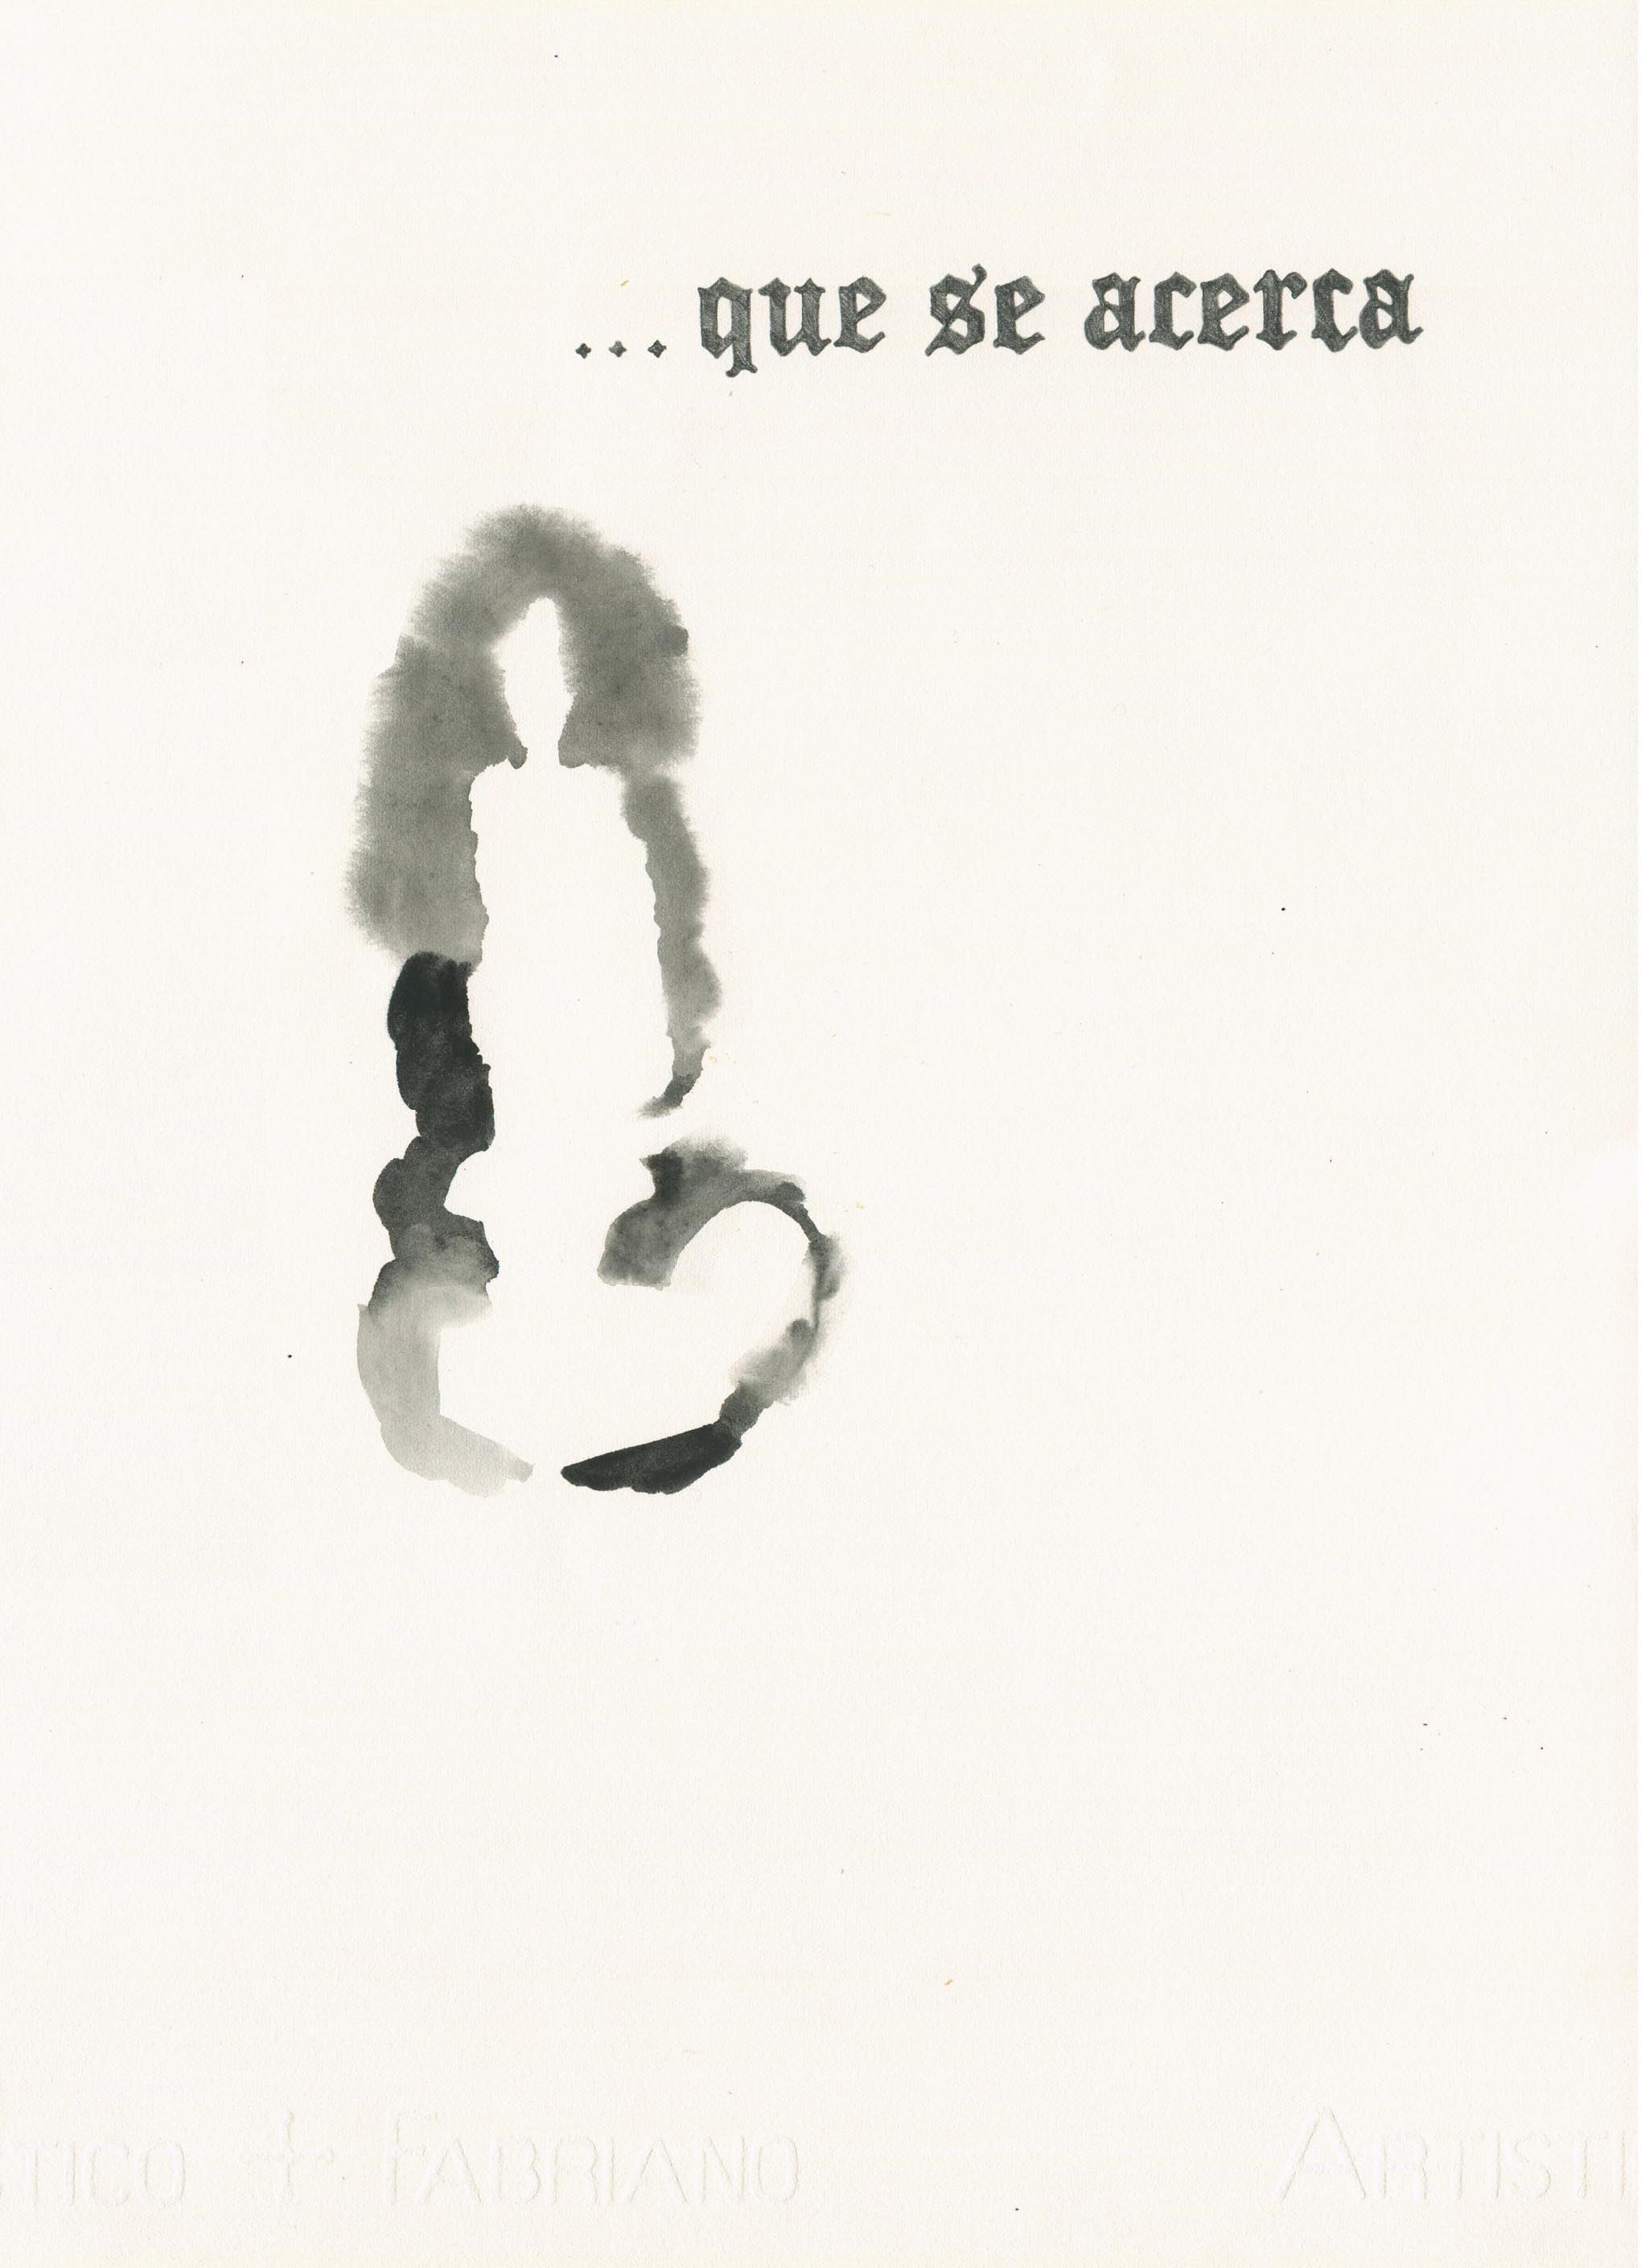 ...que se acerca
TICO + FABRIANO ARTISTI